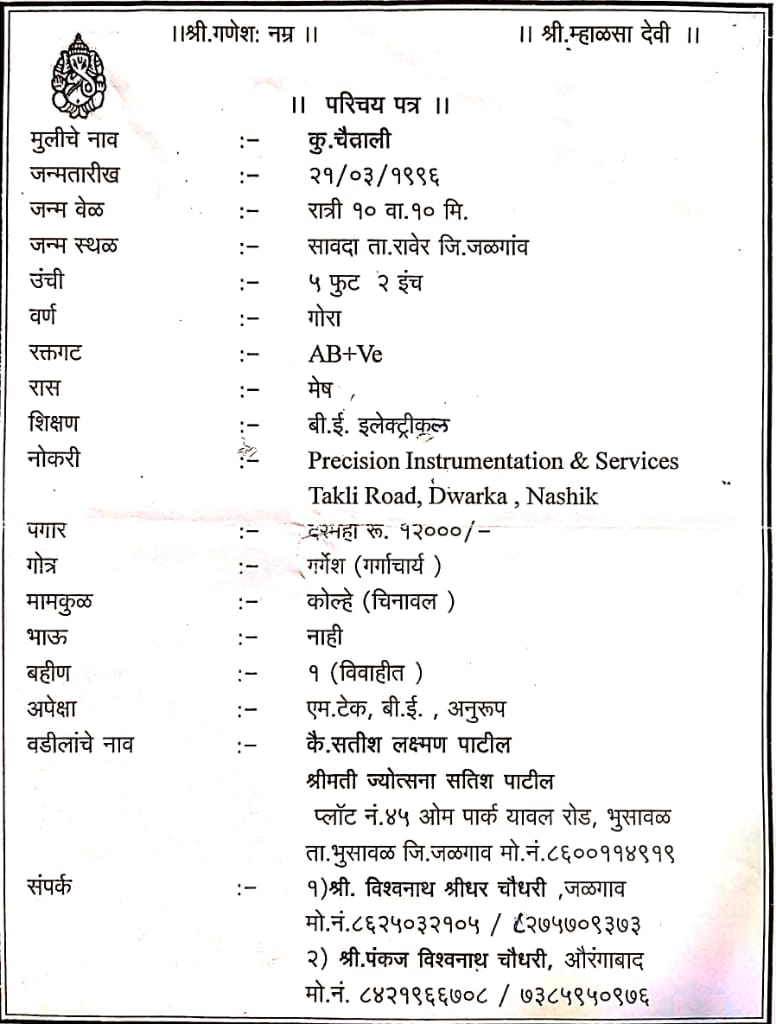 ।।श्री.गणेशः नम्र ।। ।। श्री.म्हाळसा देवी ।।
।। परिचय पत्र ।।
मुलीचे नाव :– कु.चैताली
जन्मतारीख :– २१/०३/१९९६
जन्म वेळ :– रात्री १० वा.१० मि.
जन्म स्थळ :– सावदा ता.रावेर जि.जळगांव
उंची :– ५ फुट २ इंच
वर्ण :– गोरा
रक्तगट :– AB+Ve
रास :– मेष
शिक्षण :– बी.ई. इलेक्ट्रीकूल
नोकरी :– Precision Instrumentation & Services
Takli Road, Dwarka , Nashik
पगार :– दरमहा रू. १२०००/–
गोत्र :– गर्गेश (गर्गाचार्य )
मामकुळ :– कोल्हे (चिनावल )
भाऊ :– नाही
बहीण :– १ (विवाहीत )
अपेक्षा :– एम.टेक, बी.ई. , अनुरूप
वडीलांचे नाव :– कै.सतीश लक्ष्मण पाटील
श्रीमती ज्योत्सना सतिश पाटील
प्लॉट नं.४५ ओम पार्क यावल रोड, भुसावळ
ता.भुसावळ जि.जळगाव मो.नं.८६००११४९१९
संपर्क :– १)श्री. विश्वनाथ श्रीधर चौधरी ,जळगाव
मो.नं.८६२५०३२१०५ / ८२७५७०९३७३
२) श्री.पंकज विश्वनाथ चौधरी, औरंगाबाद
मो.नं. ८४२१९६६७०८ / ७३८५९५०९७६